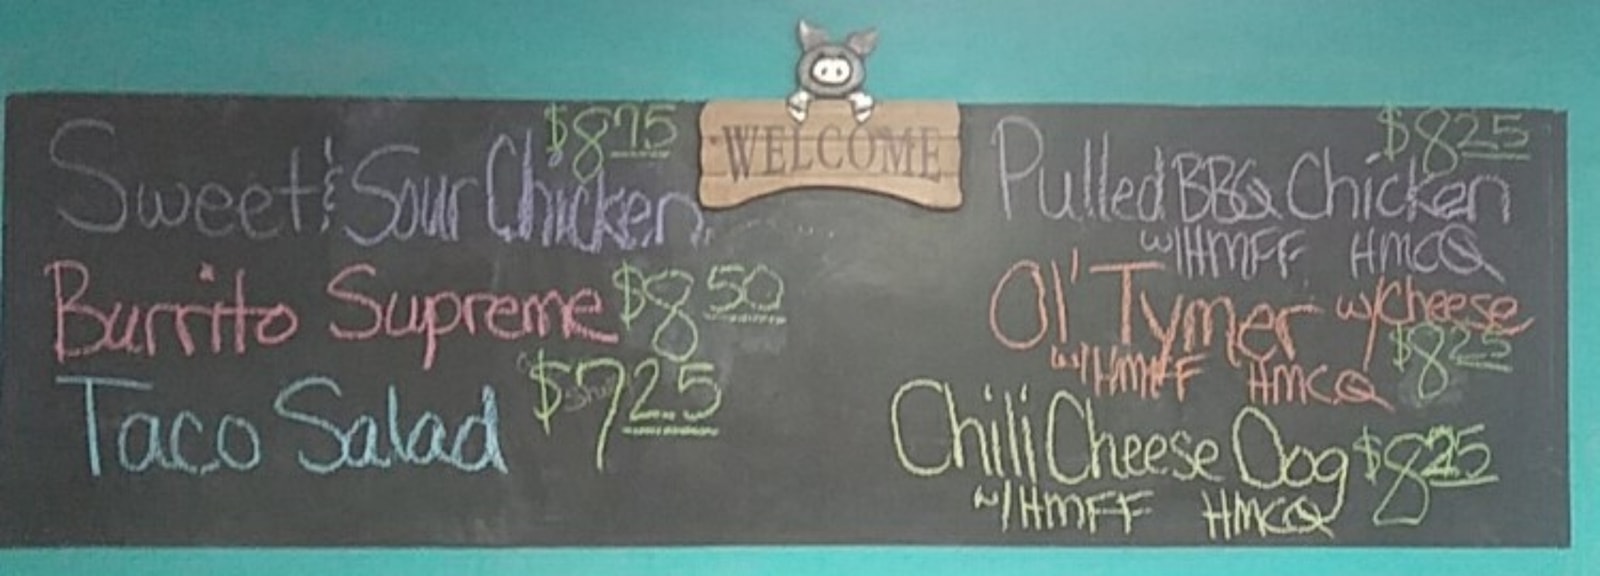 WELCOME
$8.75
Sweet & Sour Chicken
Burrito Supreme $8.50
Taco Salad $7.25
$8.25
Pulled BBQ Chicken
w/HMFF HMCQ
Ol' Tymer w/Cheese
w/HMFF HMCQ $8.25
Chili Cheese Dog $8.25
w/HMFF HMCQ